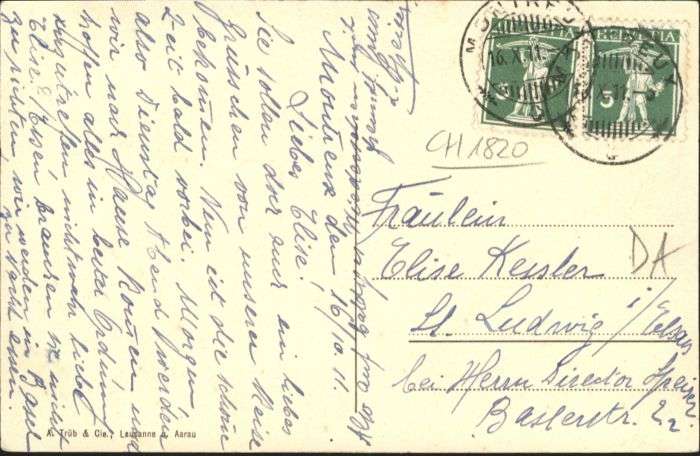 Montreux den 16/10. 11.
Liebes Elise!
Sie sollen doch auch ein liebes
Grüsschen von unserer Reise
bekommen. Nun ist die schöne
Zeit bald vorbei. Morgen
also Dienstag Abend werden
wir nach Hause kommen und
hoffen alles in bester Ordnung
anzutreffen. nicht wahr liebe
Elise! Essen brauchen Sie nicht
zu richten, wir werden in Basel
zu Nacht essen.
MONTREUX
16.X.11.
HELVETIA
HELVETIA
5
CH 1820
DA
Fräulein
Elise Kessler
St. Ludwig i/Elsass
bei Herrn Director Speiser
Baslerstr. 22.
A. Trüb & Cie., Lausanne u. Aarau